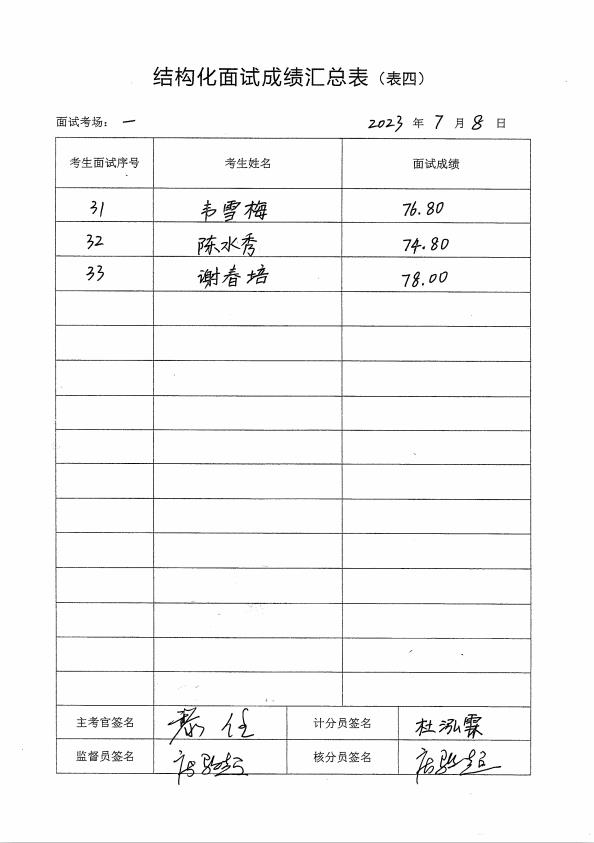 结构化面试成绩汇总表（表四）
面试考场：一 2023年7月8日
考生面试序号 考生姓名 面试成绩
31 韦雪梅 76.80
32 陈水秀 74.80
33 谢春培 78.00
主考官签名 计分员签名 杜泓霖
监督员签名 核分员签名